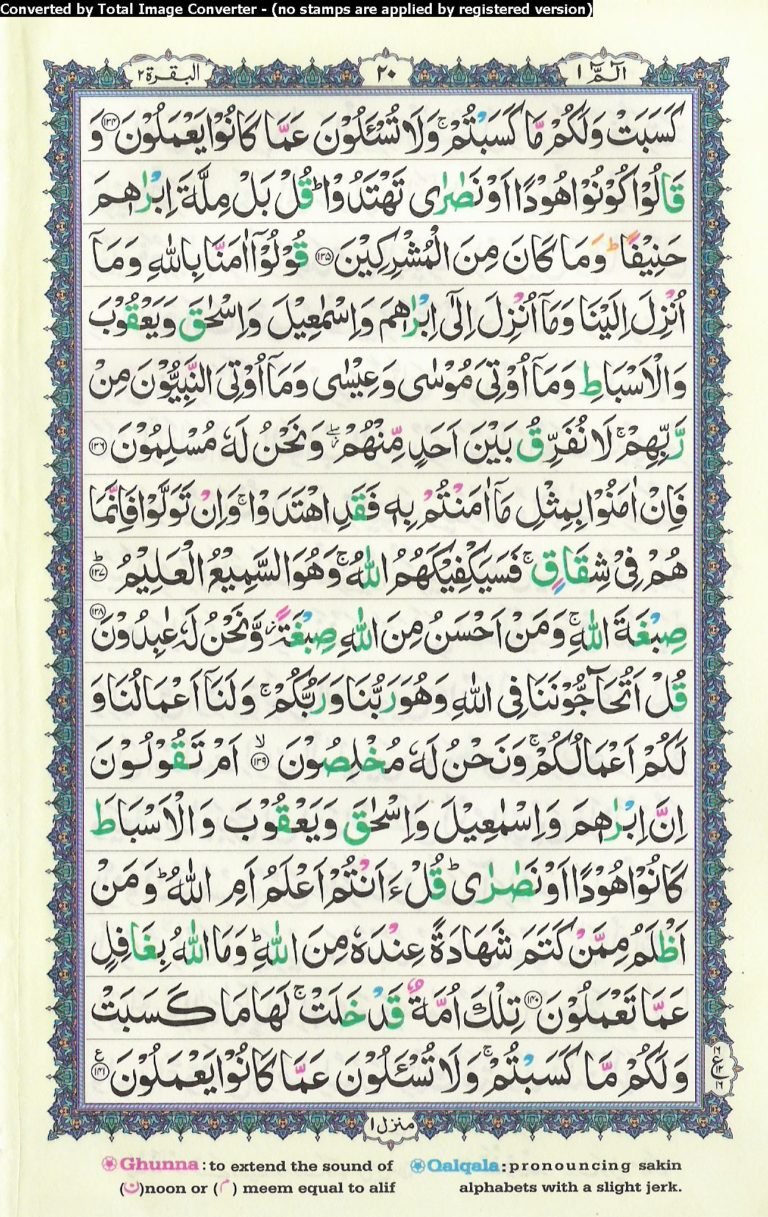 Converted by Total Image Converter - (no stamps are applied by registered version)
الٓمّٓ ١ ٢٠ البقرة ٢
كَسَبَتْ وَلَكُمْ مَّا كَسَبْتُمْ ۚ وَلَا تُسْـَٔلُوْنَ عَمَّا كَانُوْا يَعْمَلُوْنَ ﴿۱۳۴﴾ وَ
قَالُوْا كُوْنُوْا هُوْدًا اَوْ نَصٰرٰى تَهْتَدُوْا ؕ قُلْ بَلْ مِلَّةَ اِبْرٰهٖمَ
حَنِيْفًا ؕ وَمَا كَانَ مِنَ الْمُشْرِكِيْنَ ﴿۱۳۵﴾ قُوْلُوْٓا اٰمَنَّا بِاللّٰهِ وَمَآ
اُنْزِلَ اِلَيْنَا وَمَآ اُنْزِلَ اِلٰٓى اِبْرٰهٖمَ وَاِسْمٰعِيْلَ وَاِسْحٰقَ وَيَعْقُوْبَ
وَالْاَسْبَاطِ وَمَآ اُوْتِىَ مُوْسٰى وَعِيْسٰى وَمَآ اُوْتِىَ النَّبِيُّوْنَ مِنْ
رَّبِّهِمْ ۚ لَا نُفَرِّقُ بَيْنَ اَحَدٍ مِّنْهُمْ ۖ وَنَحْنُ لَهٗ مُسْلِمُوْنَ ﴿۱۳۶﴾
فَاِنْ اٰمَنُوْا بِمِثْلِ مَآ اٰمَنْتُمْ بِهٖ فَقَدِ اهْتَدَوْا ۚ وَاِنْ تَوَلَّوْا فَاِنَّمَا
هُمْ فِىْ شِقَاقٍ ۚ فَسَيَكْفِيْكَهُمُ اللّٰهُ ۚ وَهُوَ السَّمِيْعُ الْعَلِيْمُ ؕ ﴿۱۳۷﴾
صِبْغَةَ اللّٰهِ ۚ وَمَنْ اَحْسَنُ مِنَ اللّٰهِ صِبْغَةً ۡ وَّنَحْنُ لَهٗ عٰبِدُوْنَ ﴿۱۳۸﴾
قُلْ اَتُحَآجُّوْنَنَا فِى اللّٰهِ وَهُوَ رَبُّنَا وَرَبُّكُمْ ۚ وَلَنَآ اَعْمَالُنَا وَ
لَكُمْ اَعْمَالُكُمْ ۚ وَنَحْنُ لَهٗ مُخْلِصُوْنَ ۙ ﴿۱۳۹﴾ اَمْ تَقُوْلُوْنَ
اِنَّ اِبْرٰهٖمَ وَاِسْمٰعِيْلَ وَاِسْحٰقَ وَيَعْقُوْبَ وَالْاَسْبَاطَ
كَانُوْا هُوْدًا اَوْ نَصٰرٰى ؕ قُلْ ءَاَنْتُمْ اَعْلَمُ اَمِ اللّٰهُ ؕ وَمَنْ
اَظْلَمُ مِمَّنْ كَتَمَ شَهَادَةً عِنْدَهٗ مِنَ اللّٰهِ ؕ وَمَا اللّٰهُ بِغَافِلٍ
عَمَّا تَعْمَلُوْنَ ﴿۱۴۰﴾ تِلْكَ اُمَّةٌ قَدْ خَلَتْ ۚ لَهَا مَا كَسَبَتْ
وَلَكُمْ مَّا كَسَبْتُمْ ۚ وَلَا تُسْـَٔلُوْنَ عَمَّا كَانُوْا يَعْمَلُوْنَ ﴿۱۴۱﴾ ع
ع
منزل ١
Ghunna: to extend the sound of (ن)noon or (م) meem equal to alif
Qalqala: pronouncing sakin alphabets with a slight jerk.